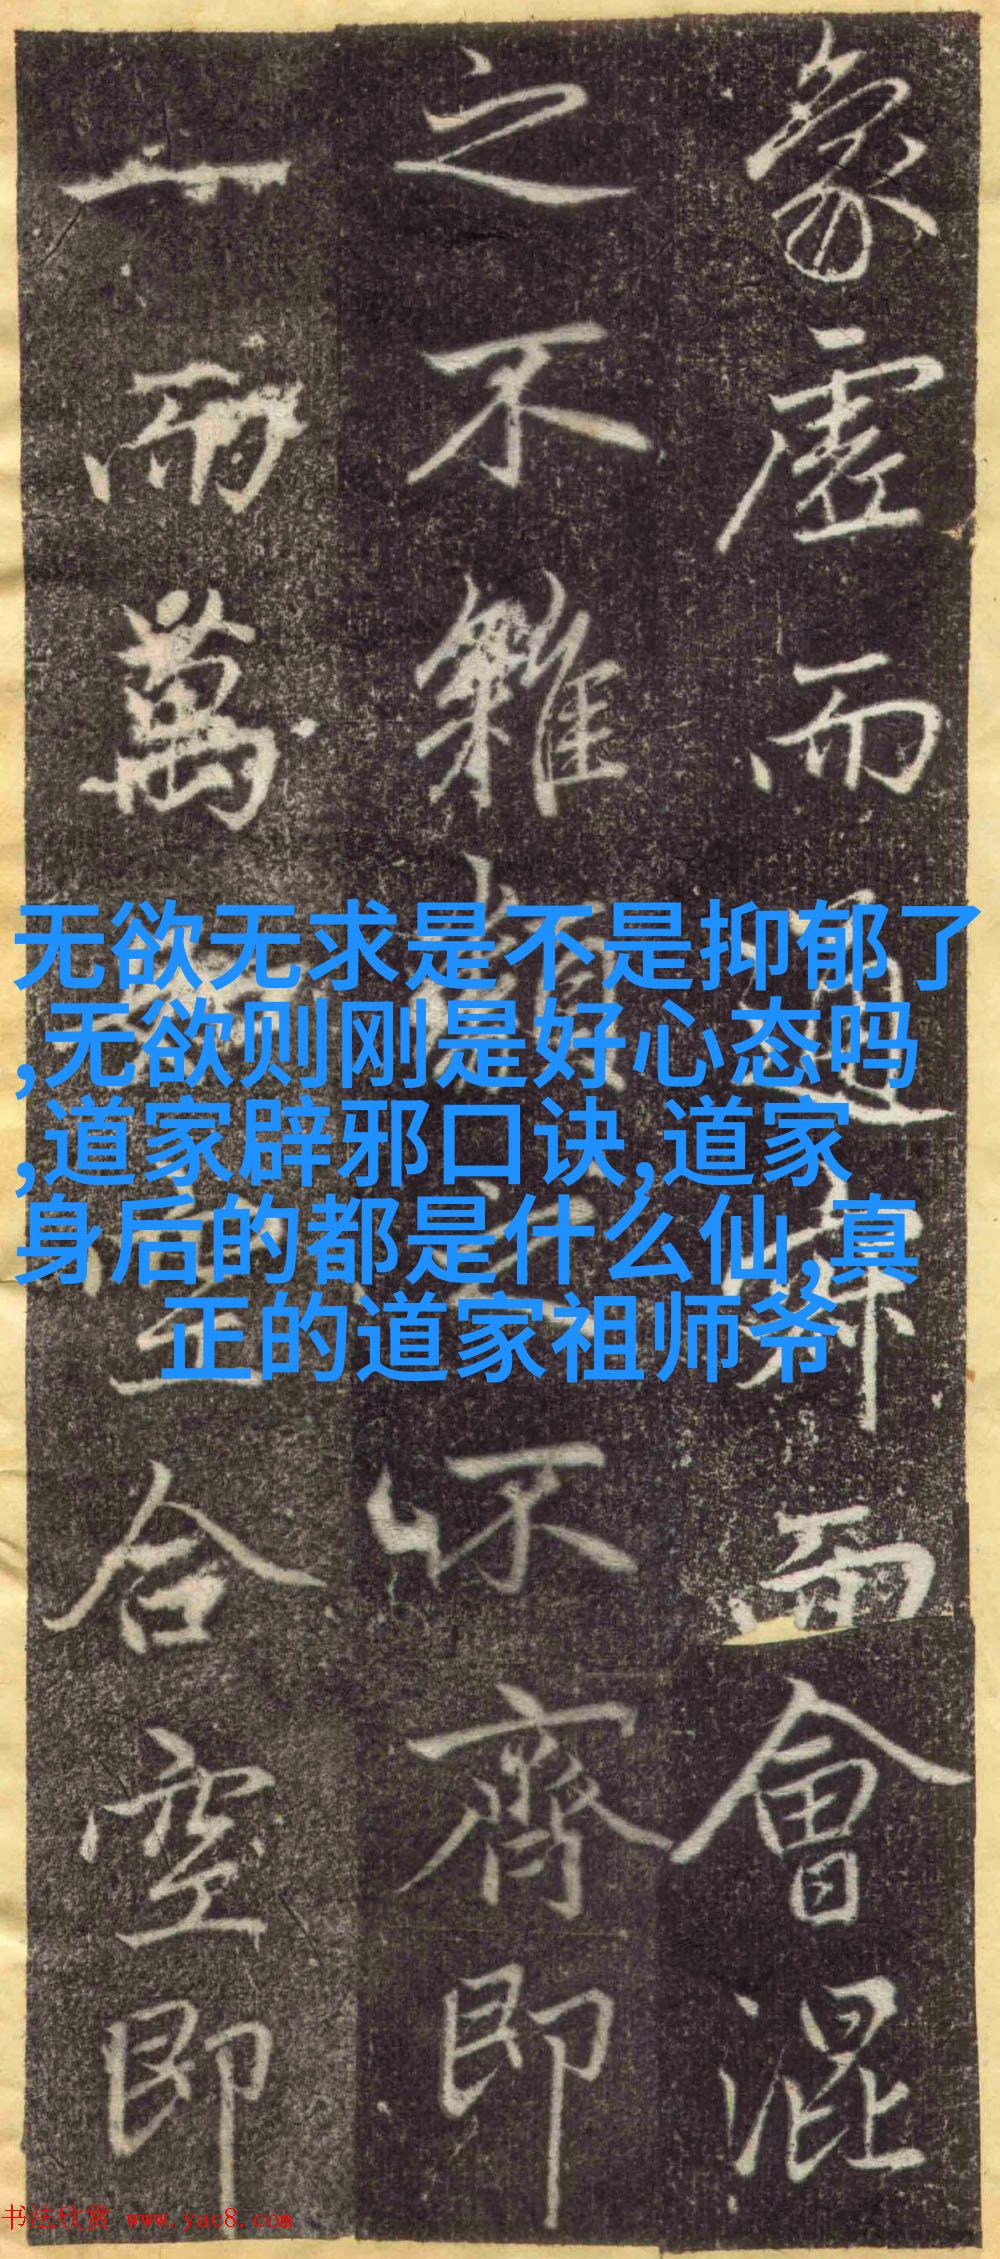 象虛而通神而會混
之不雜類之不齊即
一而萬
合空即
无欲无求是不是抑郁了
,无欲则刚是好心态吗
,道家辟邪口诀,道家
身后的都是什么仙,真
正的道家祖师爷
书法欣赏 www.yac8.com